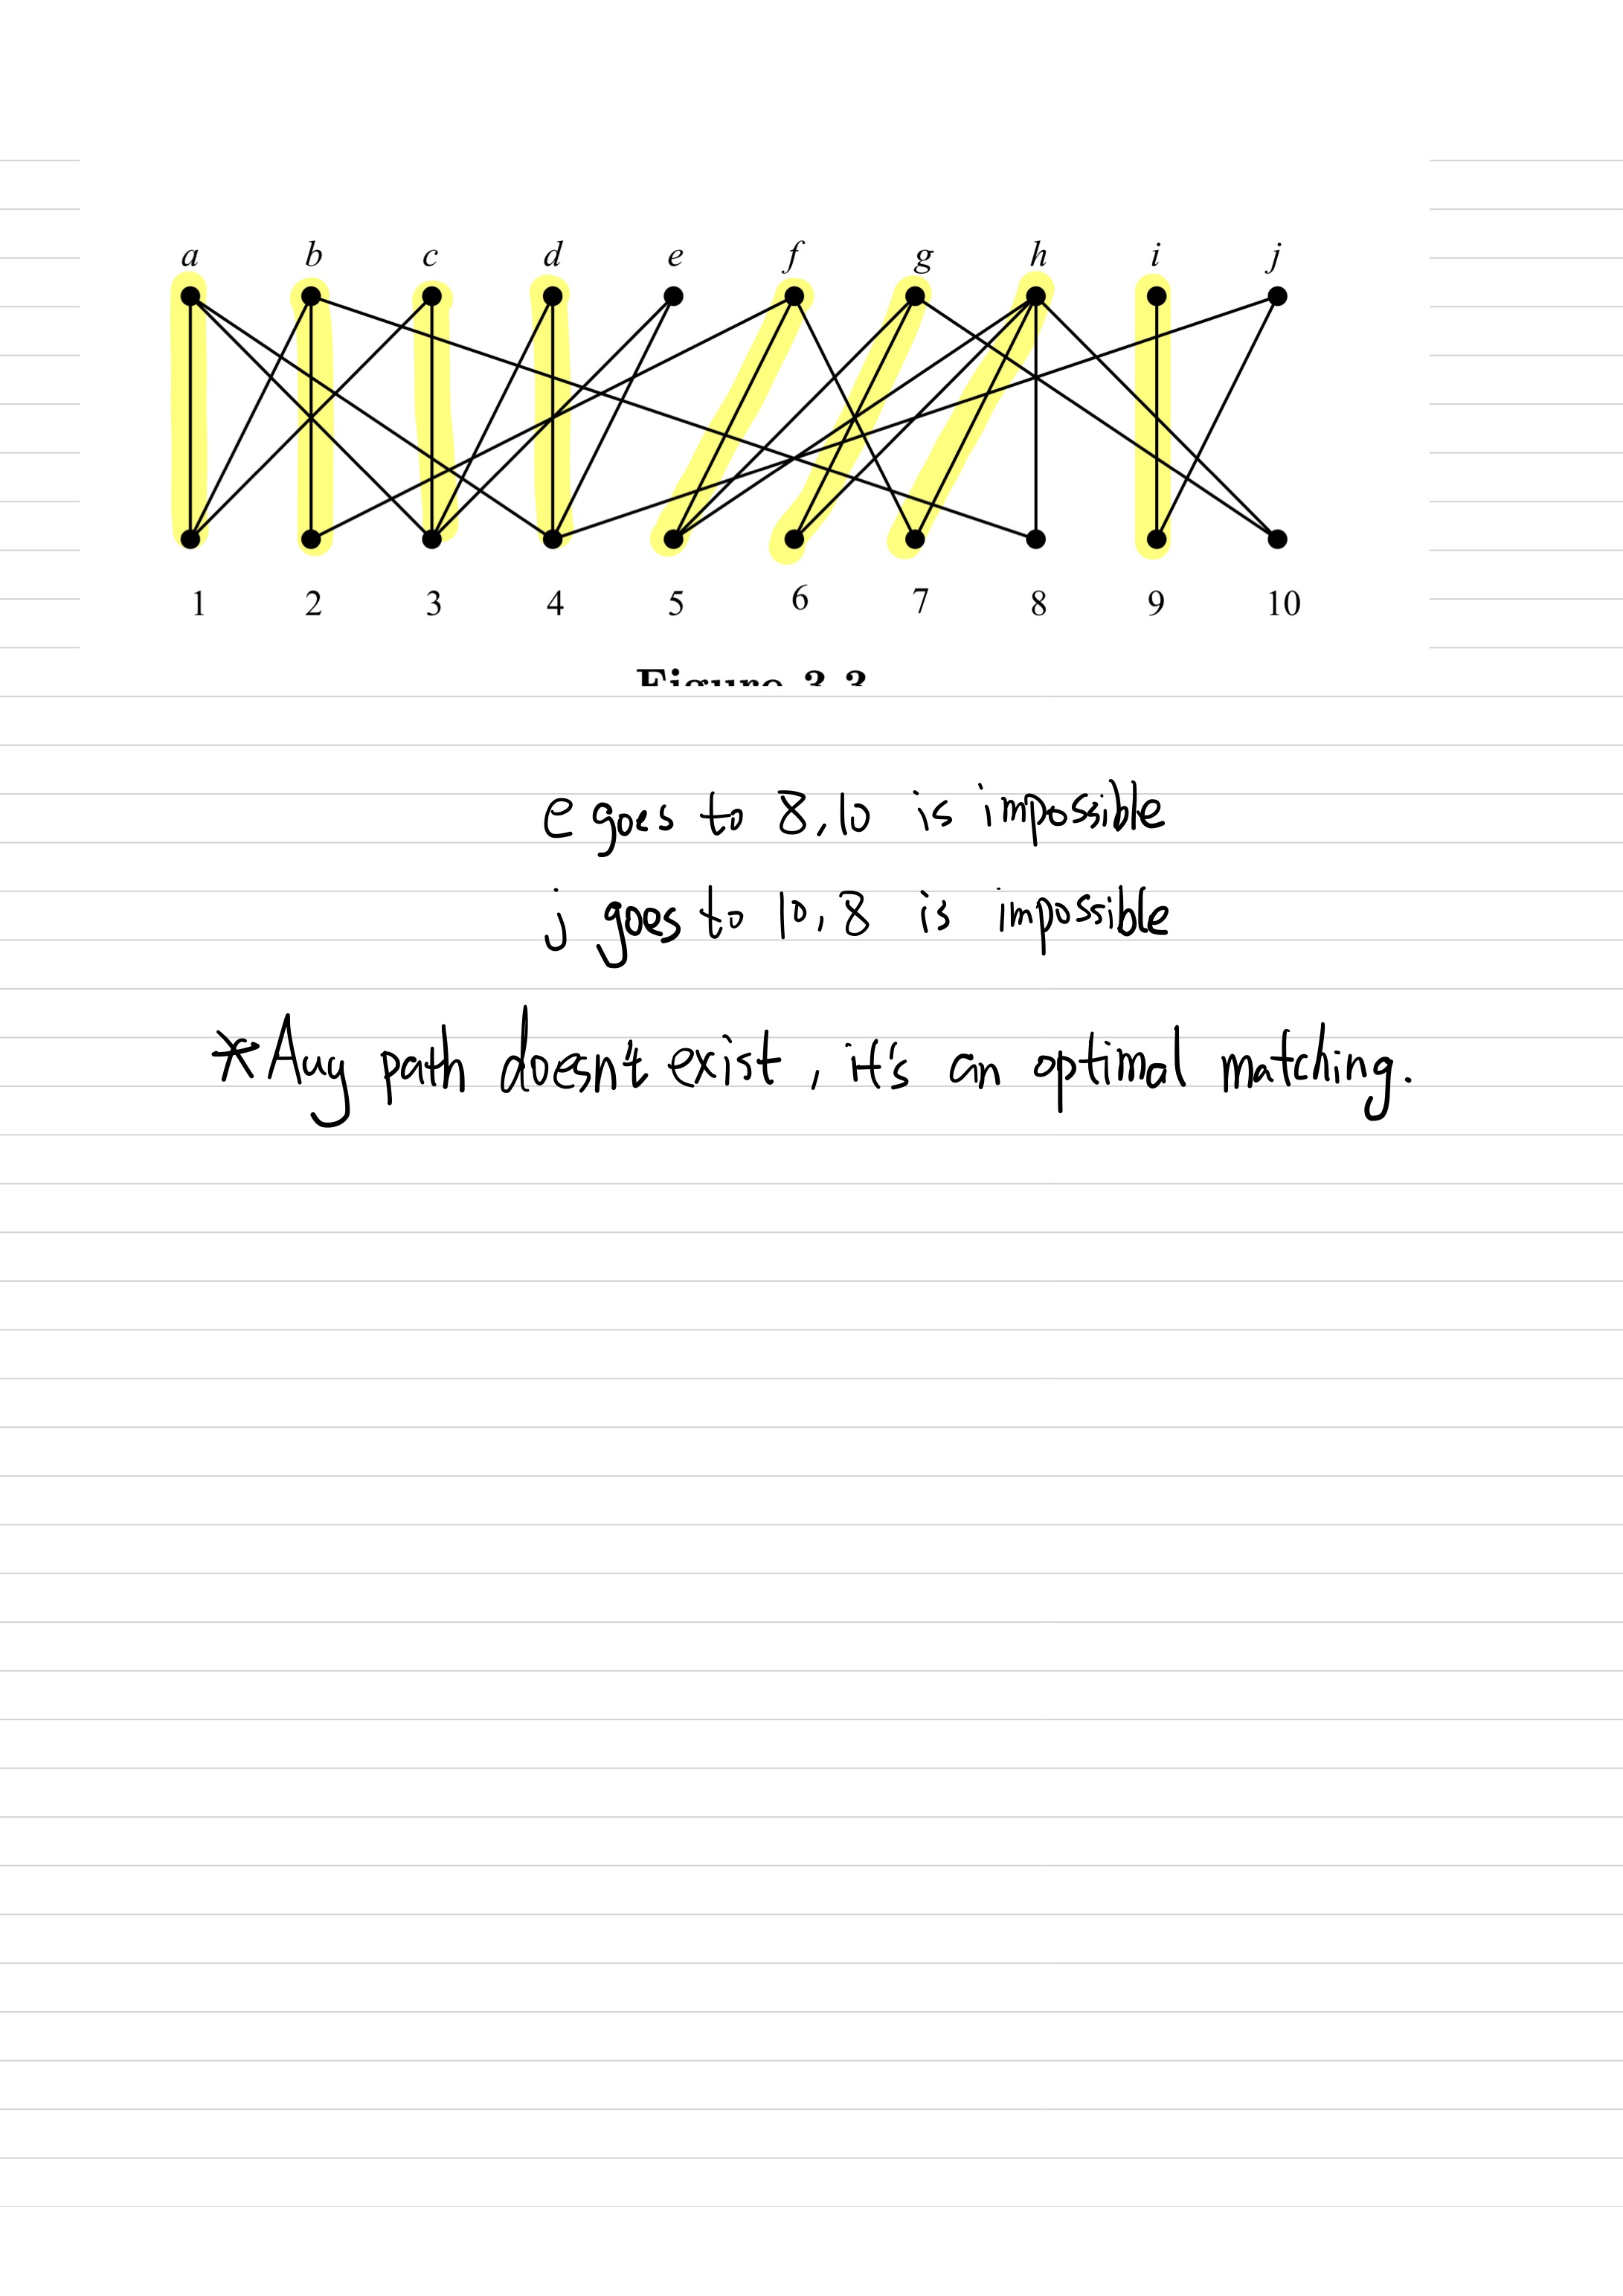 a b c d e f g h i j
1 2 3 4 5 6 7 8 9 10
Figure 3.3
e goes to 8,10 is impossible
j goes to 10,8 is impossible
*Aug path doesn't exist, it's an optimal matching.